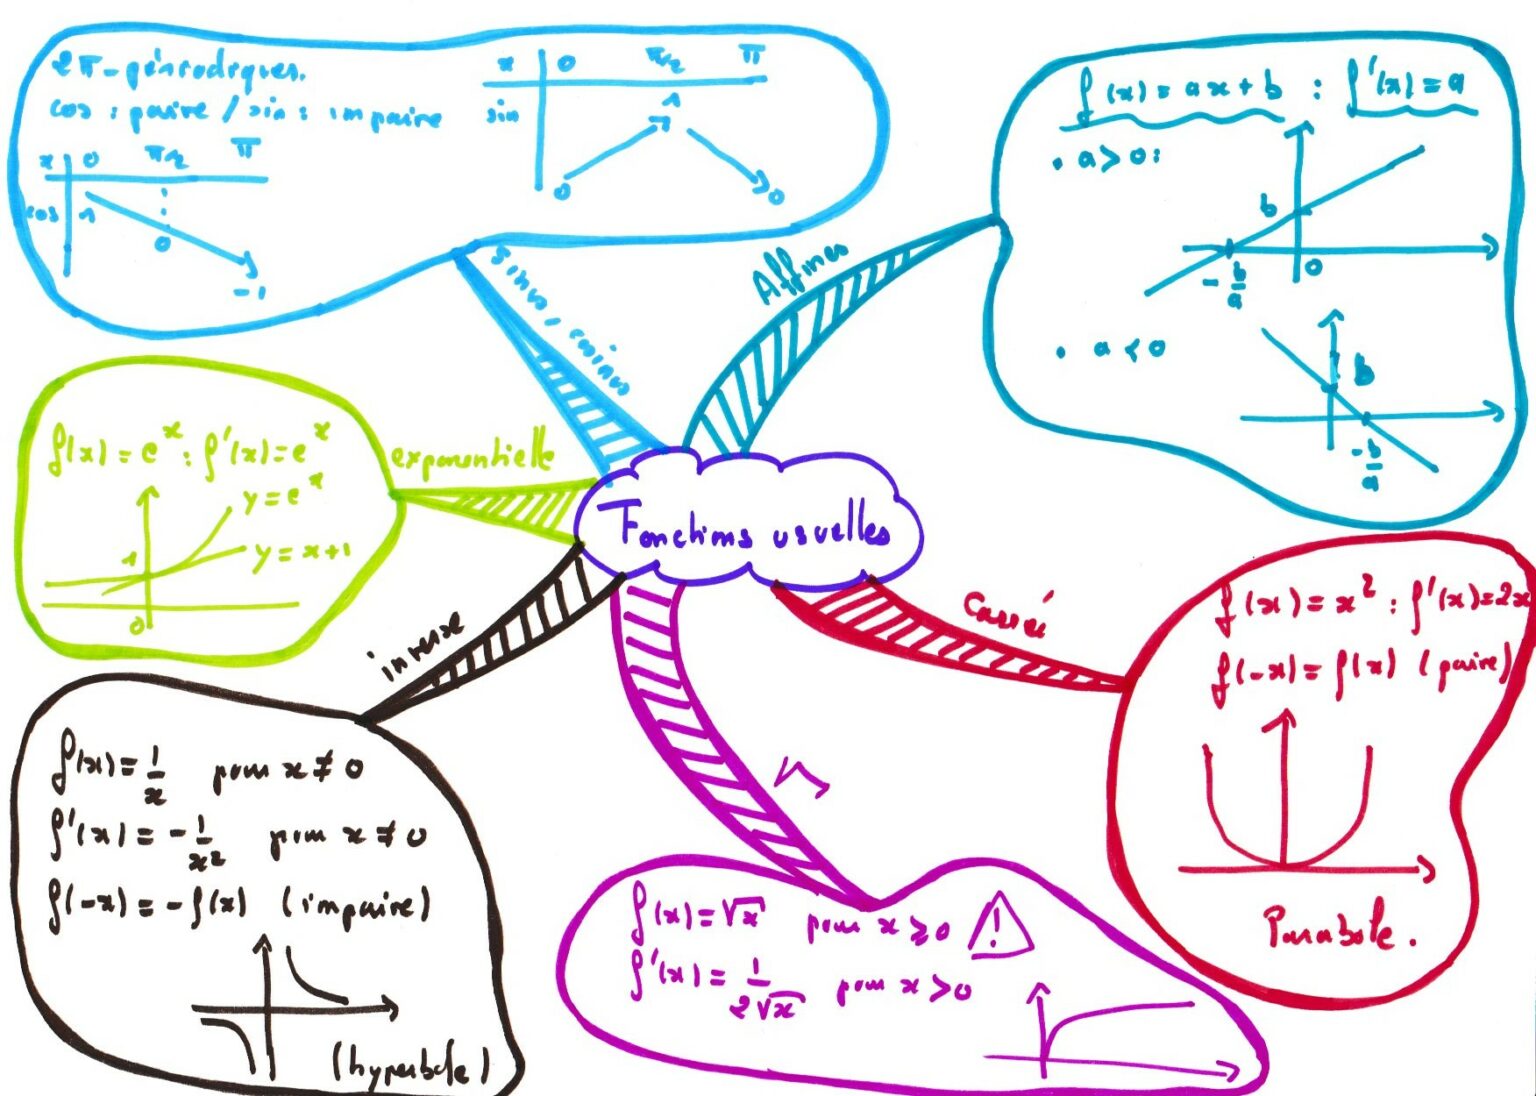 2π-périodiques.
cos : paire / sin : impaire
x 0 π/2 π
cos 1 0 -1
x 0 π/2 π
sin 0 1 0
sinus, cosinus
Affines
f(x) = ax + b : f'(x) = a
. a > 0 :
b
-b/a 0
. a < 0
b
-b/a
f(x) = e^x : f'(x) = e^x
y = e^x
1 y = x+1
0
exponentielle
Fonctions usuelles
inverse
f(x) = 1/x pour x ≠ 0
f'(x) = -1/x² pour x ≠ 0
f(-x) = -f(x) (impaire)
(hyperbole)
√
f(x) = √x pour x ⩾ 0 !
f'(x) = 1/2√x pour x > 0
Carré
f(x) = x² : f'(x) = 2x
f(-x) = f(x) (paire)
Parabole.